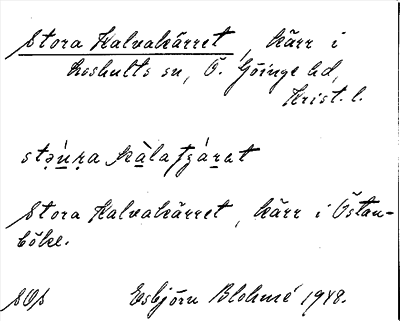 Stora Kalvakärret, kärr i
Loshults sn, Ö. Göinge hd,
Krist. l.
Stora Kalvakärret, kärr i Östan-
böke.
Esbjörn Blohmé 1948.